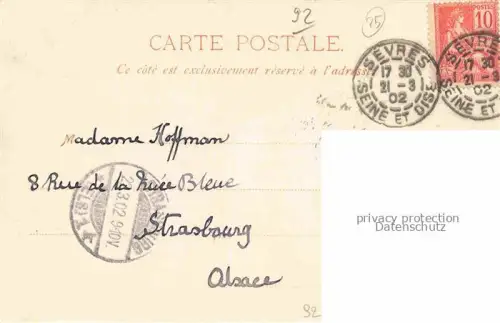 92
25
CARTE POSTALE.
Ce côté est exclusivement réservé à l'adresse
POSTES
10
SÈVRES
17 30
21 - 3
02
SEINE ET OISE
SÈVRES
17 30
21 - 3
02
SEINE ET OISE
Madame Hoffman
8 Rue de la Nuée Bleue
Strasbourg
Alsace
.3.02.9-10V.
privacy protection
Datenschutz
92